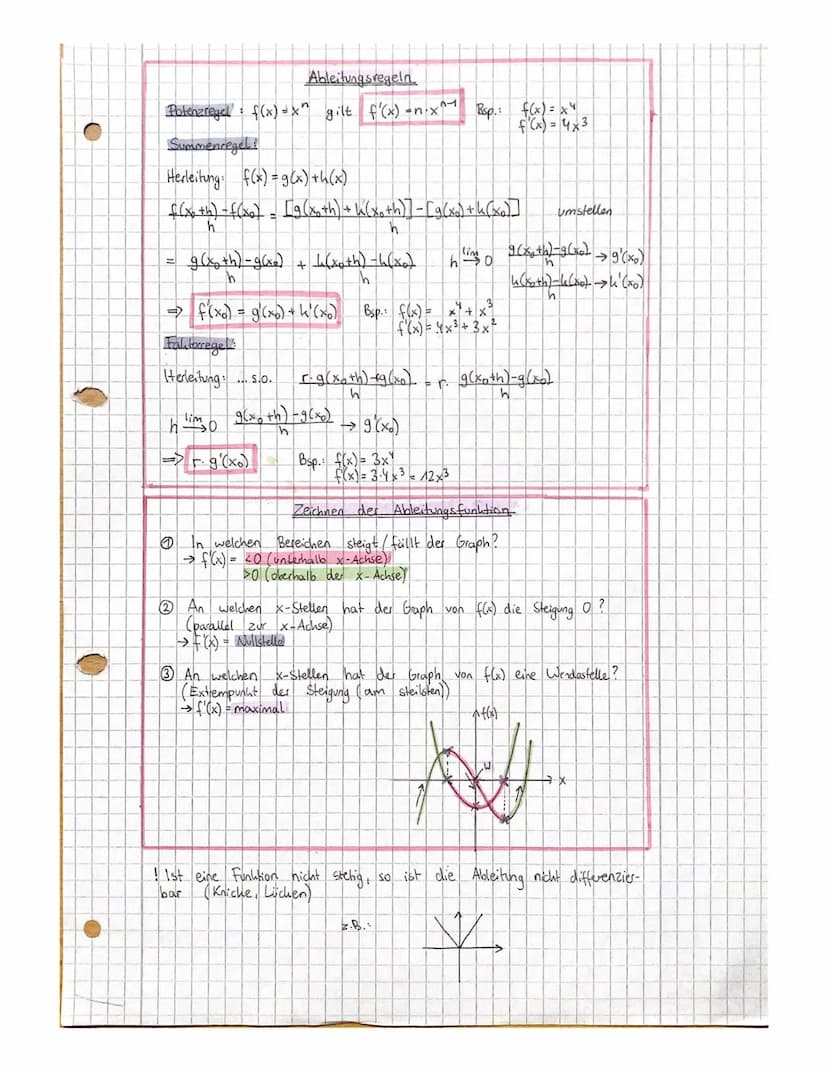 Ableitungsregeln
Potenzregel: f(x) = xⁿ gilt f'(x) = n·xⁿ⁻¹ Bsp.: f(x) = x⁴
f'(x) = 4x³
Summenregel:
Herleitung: f(x) = g(x) + k(x)
f(x₀+h) - f(x₀) / h = [g(x₀+h) + k(x₀+h)] - [g(x₀) + k(x₀)] / h umstellen
= g(x₀+h) - g(x₀) / h + k(x₀+h) - k(x₀) / h h lim→ 0 g(x₀+h) - g(x₀) / h → g'(x₀)
k(x₀+h) - k(x₀) / h → k'(x₀)
⇒ f'(x₀) = g'(x₀) + k'(x₀) Bsp.: f(x) = x⁴ + x³
f'(x) = 4x³ + 3x²
Faktorregel:
Herleitung: ... s.o. r·g(x₀+h) - rg(x₀) / h = r· g(x₀+h) - g(x₀) / h
h lim→ 0 g(x₀+h) - g(x₀) / h → g'(x₀)
⇒ r·g'(x₀) Bsp.: f(x) = 3x⁴
f'(x) = 3·4x³ = 12x³
Zeichnen der Ableitungsfunktion
① In welchen Bereichen steigt/fällt der Graph?
→ f'(x) = <0 (unterhalb x-Achse)
>0 (oberhalb der x-Achse)
② An welchen x-Stellen hat der Gaph von f(x) die Steigung 0?
(parallel zur x-Achse)
→ f'(x) = Nullstelle
③ An welchen x-Stellen hat der Graph von f(x) eine Wendestelle?
(Extrempunkt der Steigung (am steilsten))
→ f'(x) = maximal
f(x)
W
x
! Ist eine Funktion nicht stetig, so ist die Ableitung nicht differenzier-
bar (Knicke, Lücken)
z.B.: